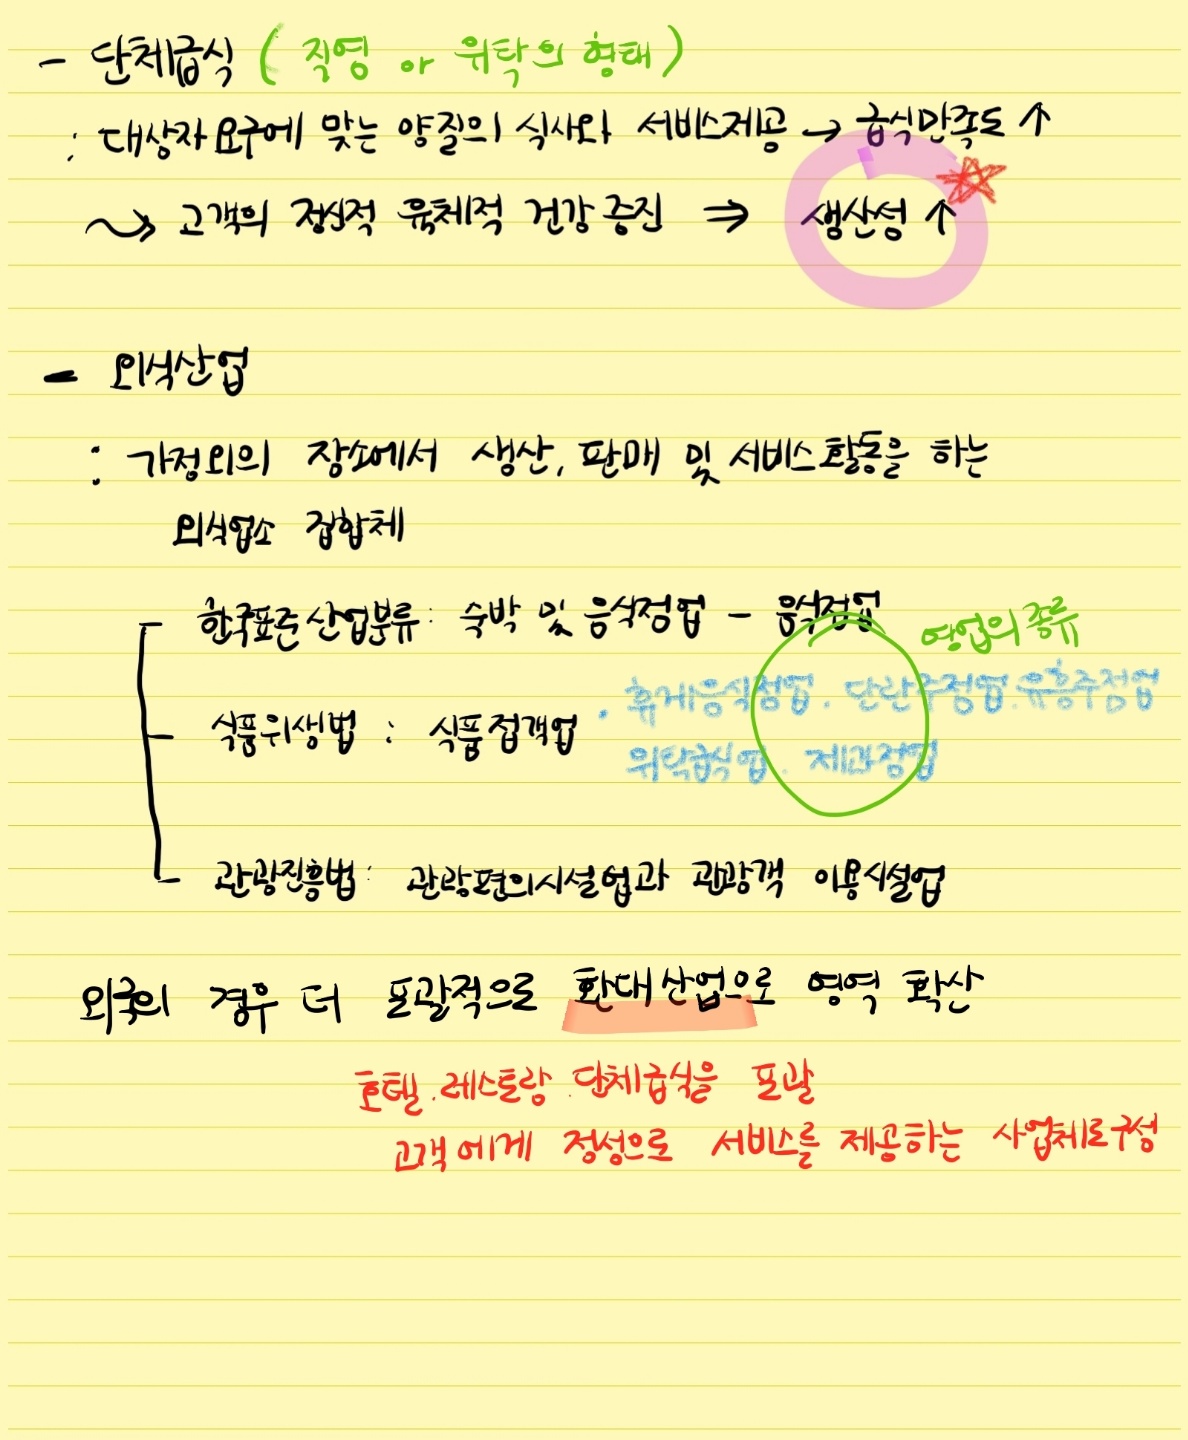 - 단체급식 ( 직영 or 위탁의 형태 )
: 대상자 요구에 맞는 양질의 식사와 서비스제공 → 급식만족도 ↑
↝ 고객의 정신적 육체적 건강증진 ⇒ 생산성 ↑
- 외식산업
: 가정외의 장소에서 생산, 판매 및 서비스활동을 하는
외식업소 집합체
한국표준산업분류 : 숙박 및 음식점업 - 음식점업
영업의 종류
식품위생법 : 식품접객업
· 휴게음식점업 . 단란주점업 . 유흥주점업
위탁급식업 . 제과점업
관광진흥법 : 관광편의시설업과 관광객 이용시설업
외국의 경우 더 포괄적으로 환대산업으로 영역 확산
호텔 . 레스토랑 . 단체급식을 포괄
고객에게 정성으로 서비스를 제공하는 사업체로 구성